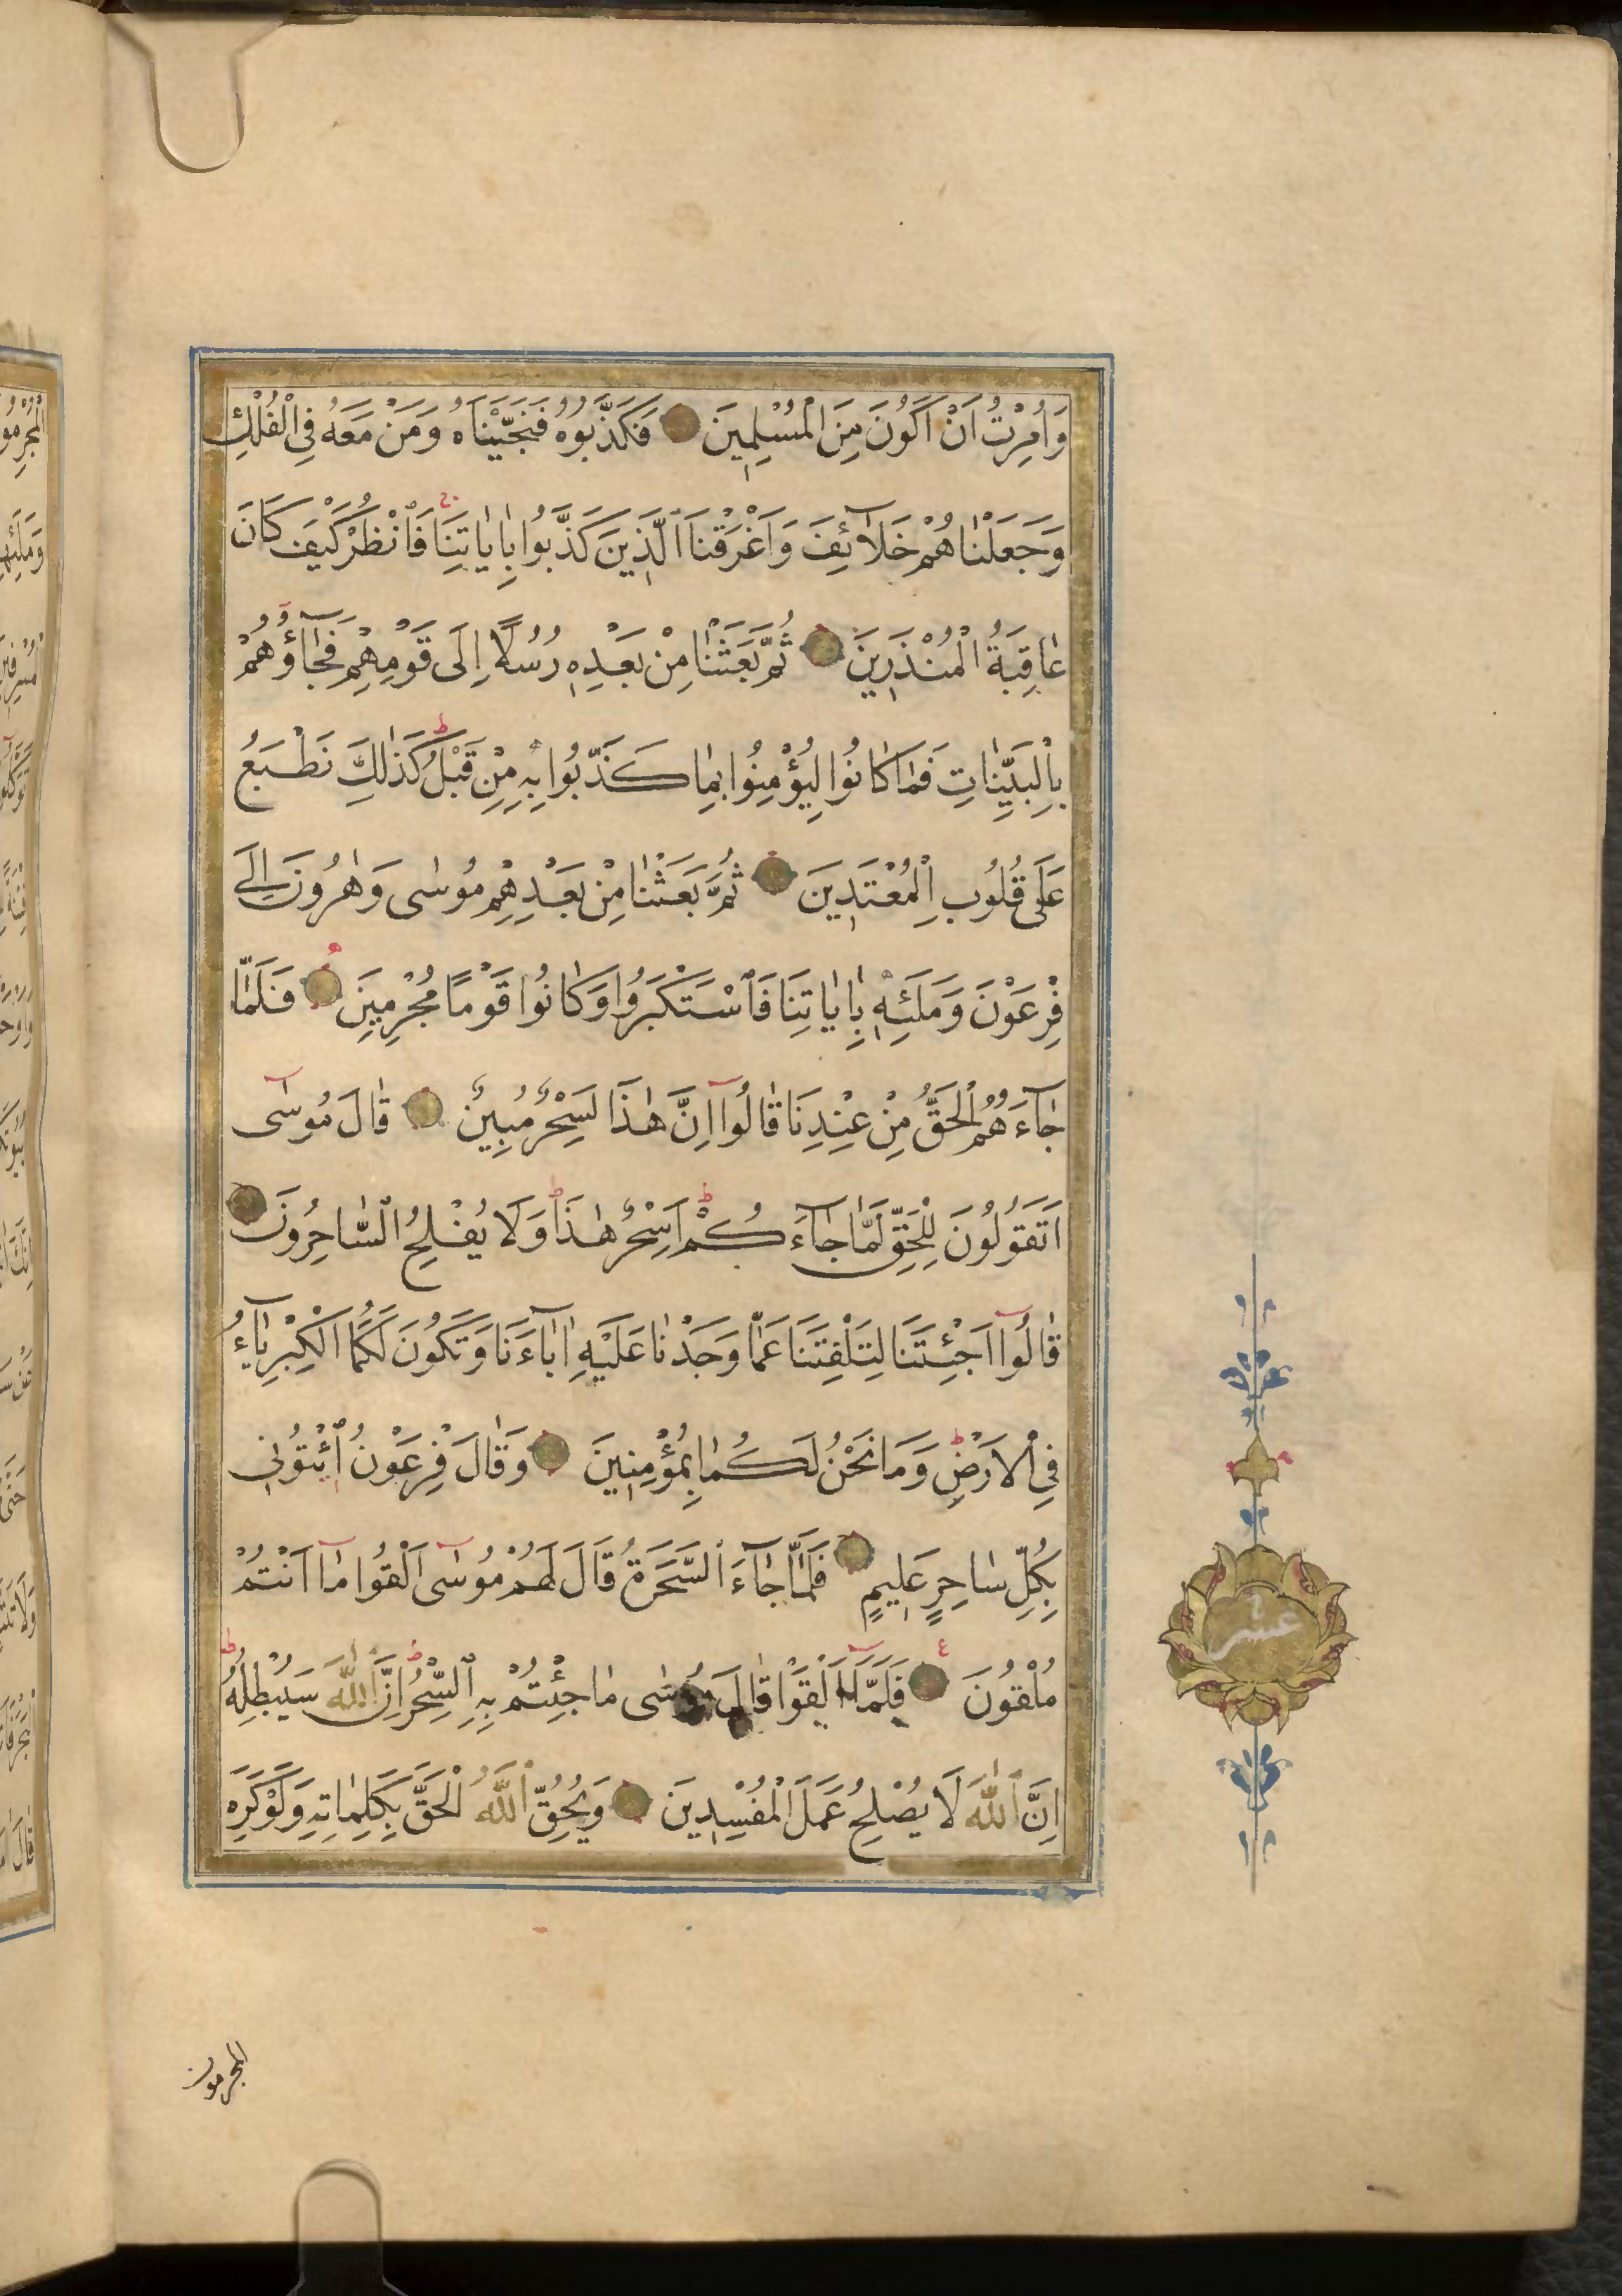 وَاُمِرْتُ اَنْ اَكُونَ مِنَ الْمُسْلِمِينَ فَكَذَّبُوهُ فَنَجَّيْنَاهُ وَمَنْ مَعَهُ فِي الْفُلْكِ
وَجَعَلْنَاهُمْ خَلَآئِفَ وَاَغْرَقْنَا الَّذِينَ كَذَّبُوا بِاٰيَاتِنَا فَانْظُرْ كَيْفَ كَانَ
عَاقِبَةُ الْمُنْذَرِينَ ثُمَّ بَعَثْنَا مِنْ بَعْدِهِ رُسُلًا اِلَى قَوْمِهِمْ فَجَآؤُهُمْ
بِالْبَيِّنَاتِ فَمَا كَانُوا لِيُؤْمِنُوا بِمَا كَذَّبُوا بِهِ مِنْ قَبْلُ كَذٰلِكَ نَطْبَعُ
عَلَى قُلُوبِ الْمُعْتَدِينَ ثُمَّ بَعَثْنَا مِنْ بَعْدِهِمْ مُوسٰى وَهٰرُونَ اِلَى
فِرْعَوْنَ وَمَلَئِهِ بِاٰيَاتِنَا فَاسْتَكْبَرُوا وَكَانُوا قَوْمًا مُجْرِمِينَ فَلَمَّا
جَآءَهُمُ الْحَقُّ مِنْ عِنْدِنَا قَالُوآ اِنَّ هٰذَا لَسِحْرٌ مُبِينٌ قَالَ مُوسٰٓى
اَتَقُولُونَ لِلْحَقِّ لَمَّا جَآءَكُمْ اَسِحْرٌ هٰذَا وَلَا يُفْلِحُ السَّاحِرُونَ
قَالُوآ اَجِئْتَنَا لِتَلْفِتَنَا عَمَّا وَجَدْنَا عَلَيْهِ اٰبَاءَنَا وَتَكُونَ لَكُمَا الْكِبْرِيَآءُ
فِي الْاَرْضِ وَمَا نَحْنُ لَكُمَا بِمُؤْمِنِينَ وَقَالَ فِرْعَوْنُ ائْتُونِي
بِكُلِّ سَاحِرٍ عَلِيمٍ فَلَمَّا جَآءَ السَّحَرَةُ قَالَ لَهُمْ مُوسٰٓى اَلْقُوا مَآ اَنْتُمْ
مُلْقُونَ فَلَمَّآ اَلْقَوْا قَالَ مُوسٰى مَا جِئْتُمْ بِهِ السِّحْرُ اِنَّ اللّٰهَ سَيُبْطِلُهُ
اِنَّ اللّٰهَ لَا يُصْلِحُ عَمَلَ الْمُفْسِدِينَ وَيُحِقُّ اللّٰهُ الْحَقَّ بِكَلِمَاتِهِ وَلَوْ كَرِهَ
عشر
المجرمون